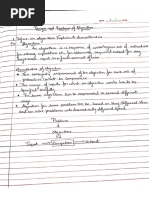 Design and Analysis of Algorithm
1. Define an algorithm. Explain its characteristics
Algorithm
The algorithm is a sequence of unambiguous set of instruction
for solving a problem, i.e. for obtaining a required output for any
input in
Characteristics of Algorithm
The non-ambiguity requirement of the algorithm for each
The range of inputs for which an algorithm works has to be
specified carefully.
The same algorithm can be represented in several different
ways.
Algorithm for same problem can be based on very different
ideas and with dramatically different speed.
Problem
Algorithm
Input
Computer
Output